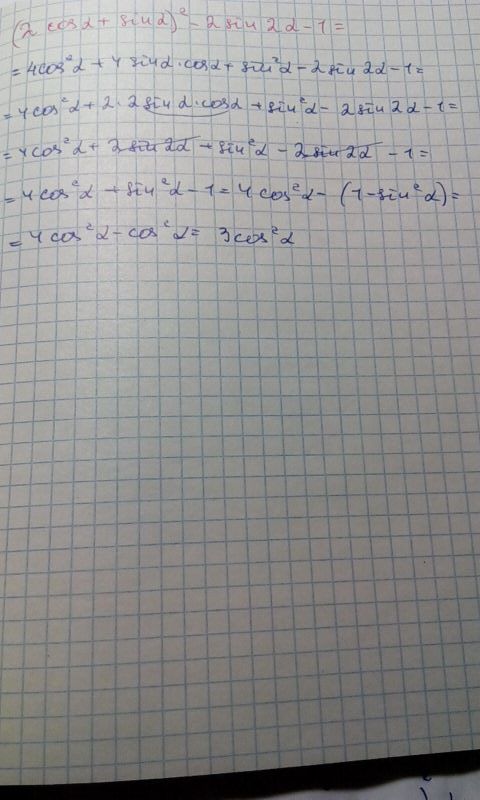 (2 cosα + sinα)² - 2 sin 2α - 1 =
= 4cos²α + 4 sinα · cosα + sin²α - 2 sin 2α - 1 =
= 4cos²α + 2 · 2 sinα · cosα + sin²α - 2 sin 2α - 1 =
= 4cos²α + 2 sin 2α + sin²α - 2 sin 2α - 1 =
= 4cos²α + sin²α - 1 = 4cos²α - (1 - sin²α) =
= 4cos²α - cos²α = 3cos²α